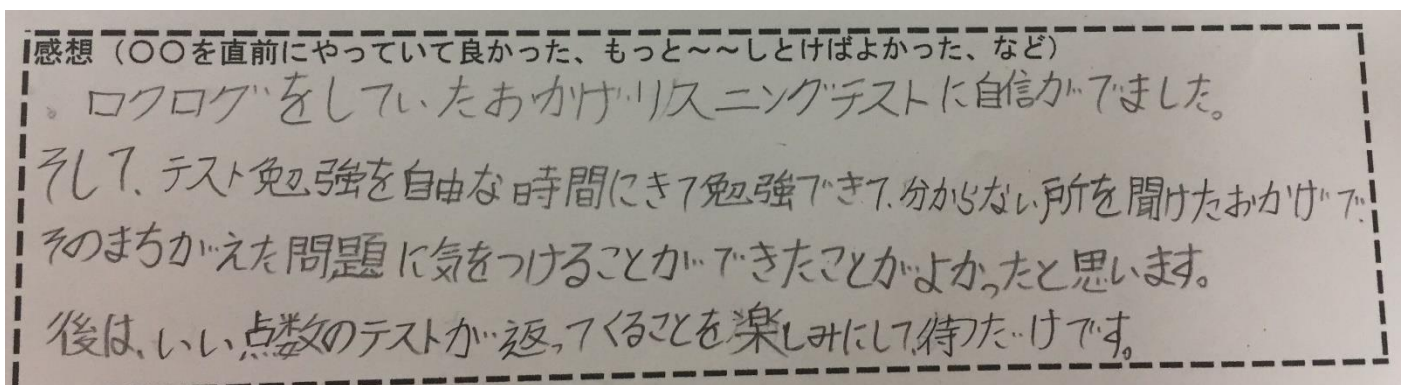 感想（〇〇を直前にやっていて良かった、もっと～～しとけばよかった、など）
ロクログをしていたおかげリスニングテストに自信がでました。
そして、テスト勉強を自由な時間にきて勉強できて、分からない所を聞けたおかげで、
そのまちがえた問題に気をつけることができたことがよかったと思います。
後は、いい点数のテストが返ってくることを楽しみにして、待つだけです。